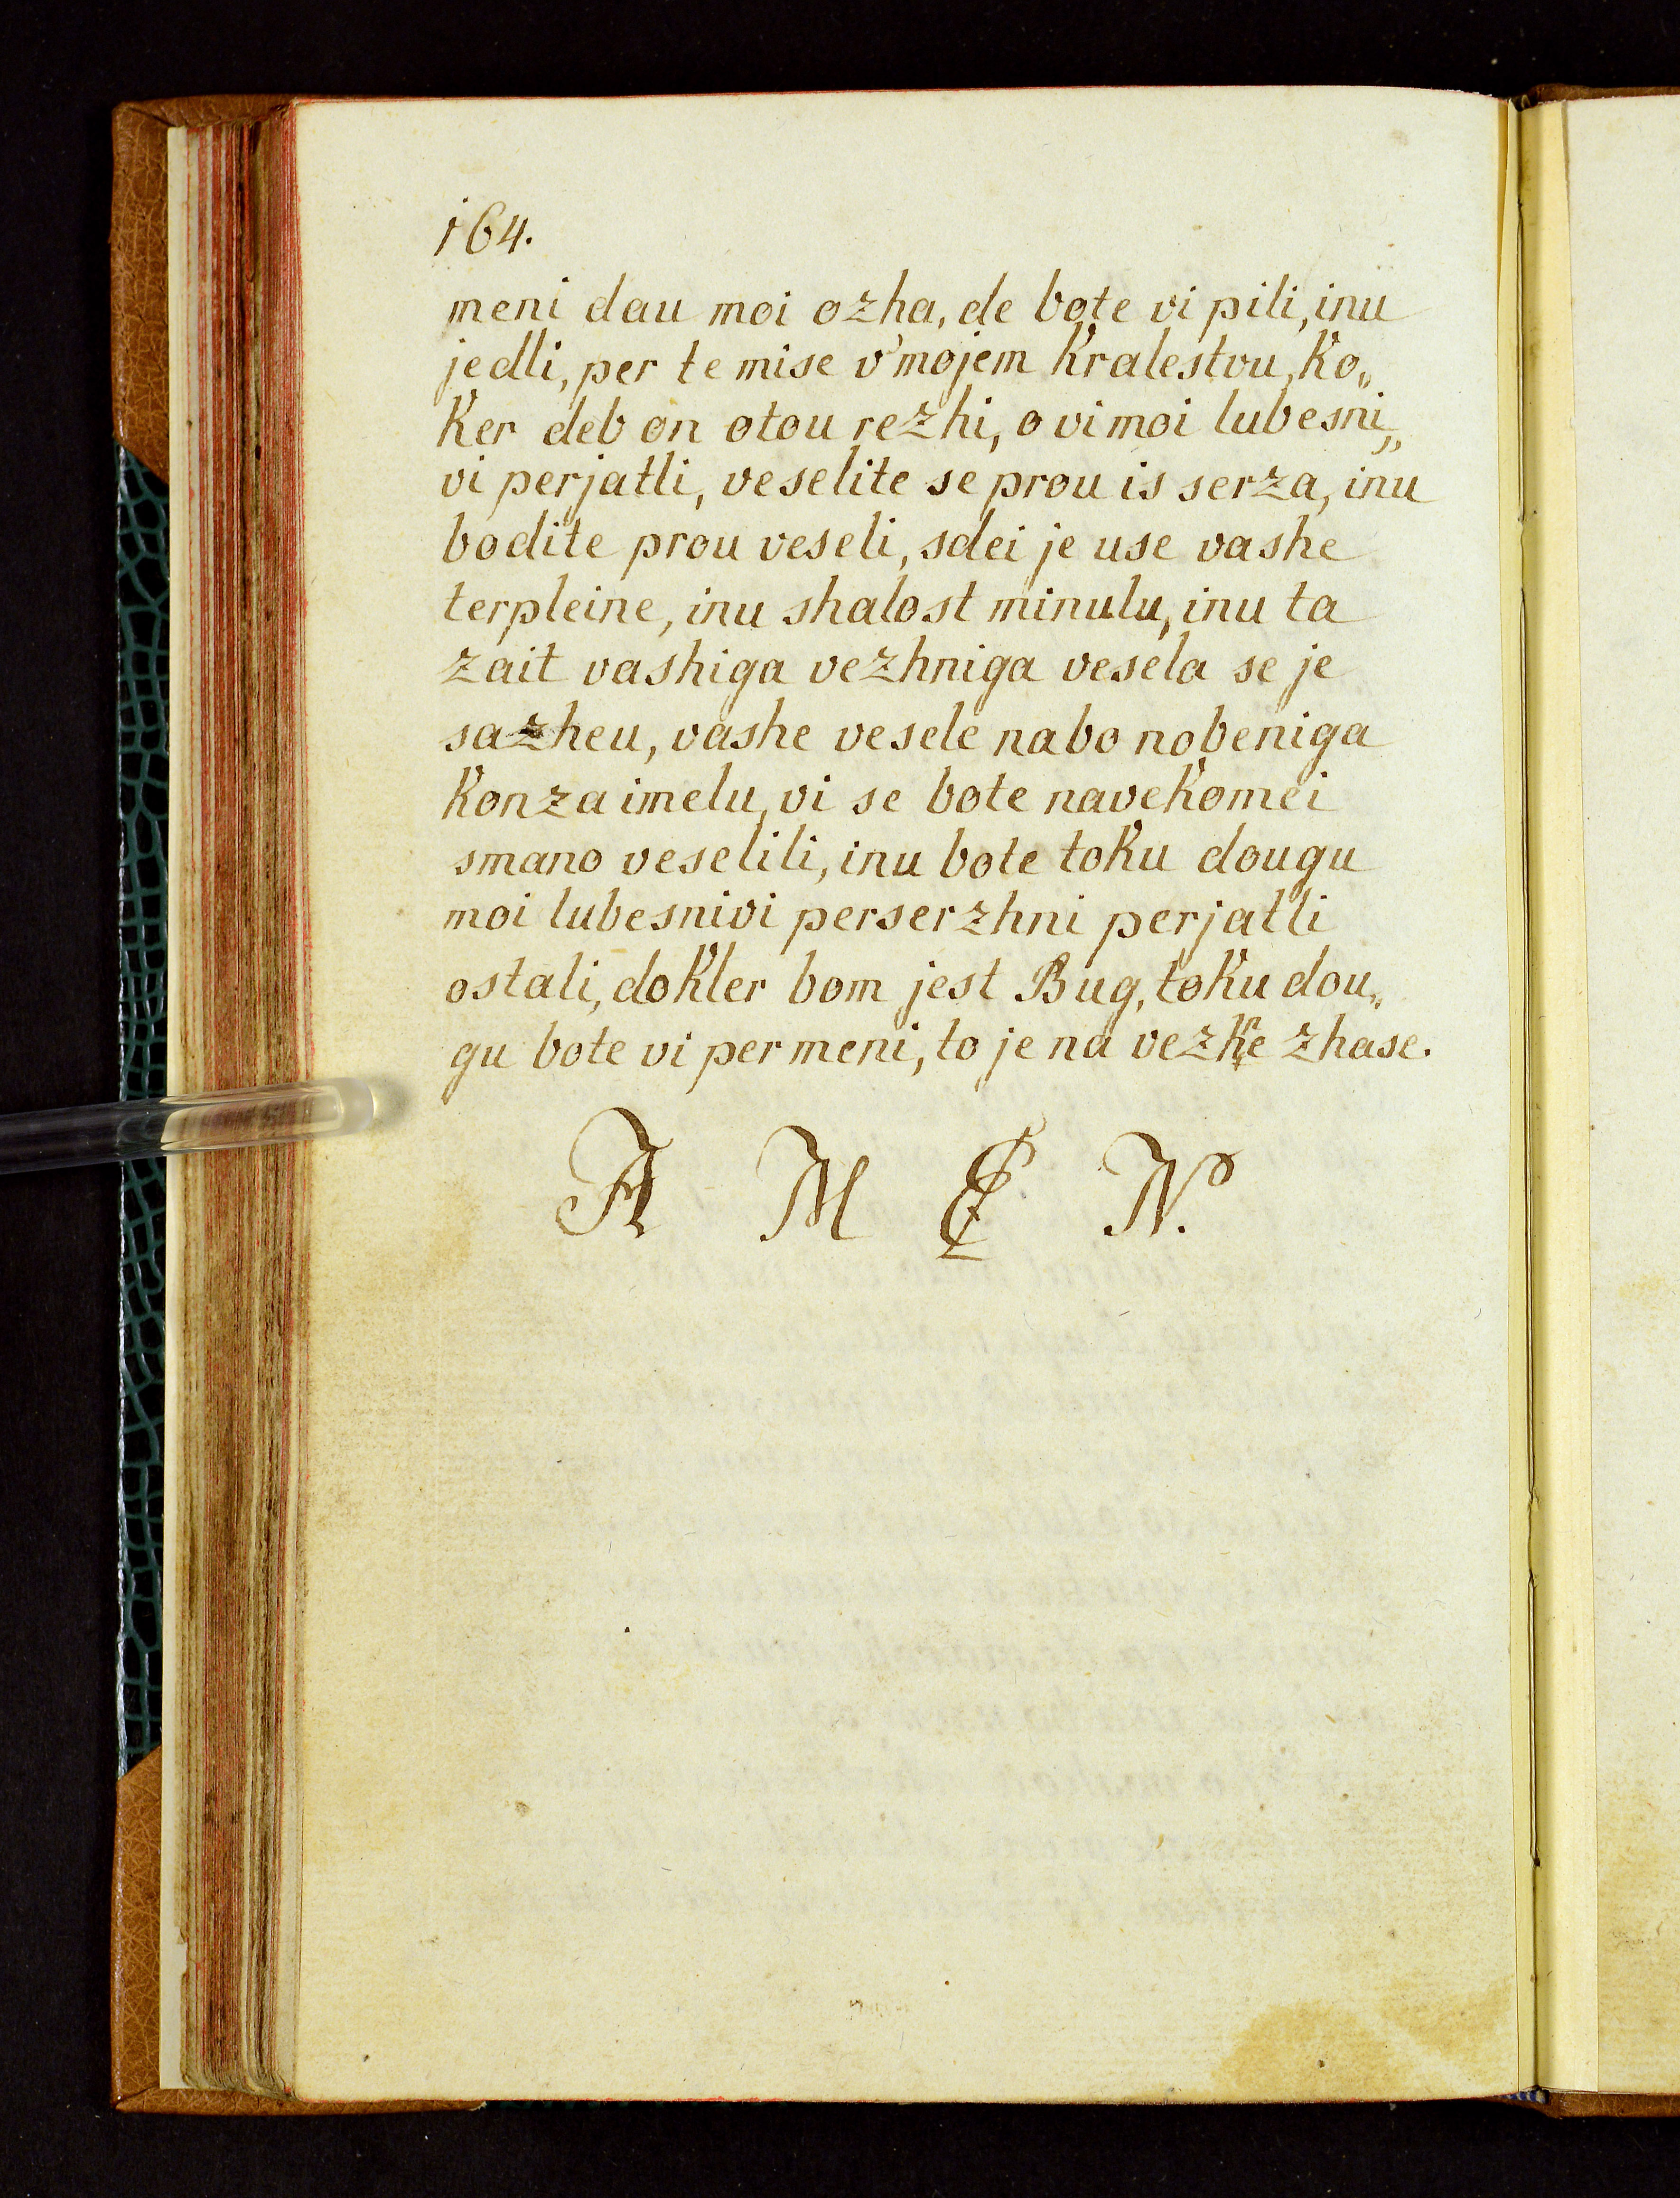 164.
meni dau moi ozha, de bote vi pili, inu
jedli, per te mise v'mojem Kralestvu, Ko„
Ker deb on otou rezhi, o vi moi lubesni„
vi perjatli, veselite se prou is serza, inu
bodite prou veseli, sdei je use vashe
terpleine, inu shalost minulu, inu ta
zait vashiga vezhniga vesela se je
sazheu, vashe vesele nabo nobeniga
Konza imelu, vi se bote naveKomei
smano veselili, inu bote toKu dougu
moi lubesnivi perserzhni perjatli
ostali, doKler bom jest Bug, toKu dou„
gu bote vi per meni, to je na vezKe zhase.
A M E N.